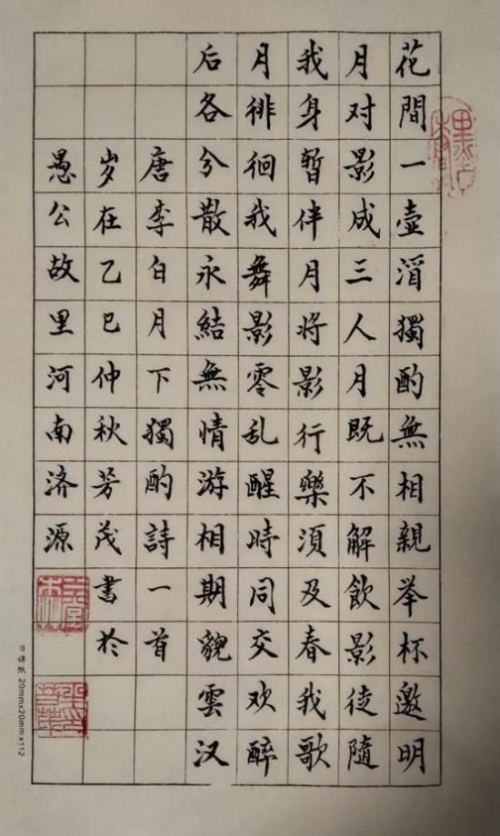 花間一壺酒獨酌無相親举杯邀明
月对影成三人月既不解飲影徒隨
我身暫伴月将影行樂須及春我歌
月徘徊我舞影零乱醒時同交欢醉
后各分散永結無情游相期邈雲汉
唐李白月下獨酌詩一首
岁在乙巳仲秋芳茂書於
愚公故里河南济源
日课纸 20mm×20mm×112